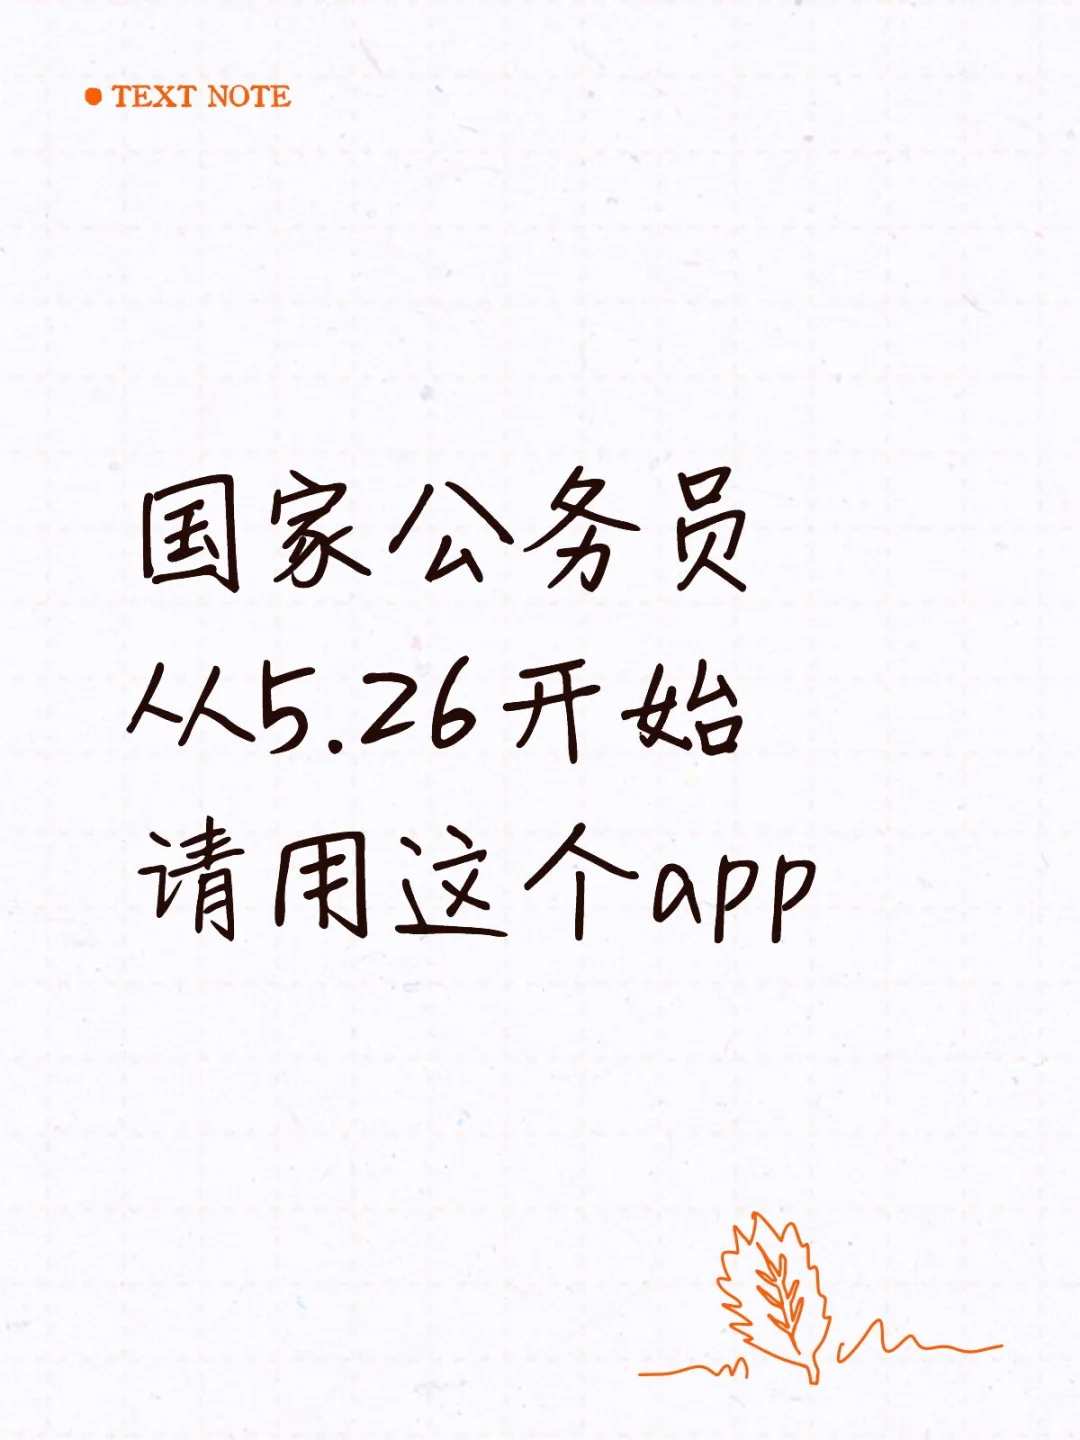 TEXT NOTE
国家公务员
从5.26开始
请用这个app